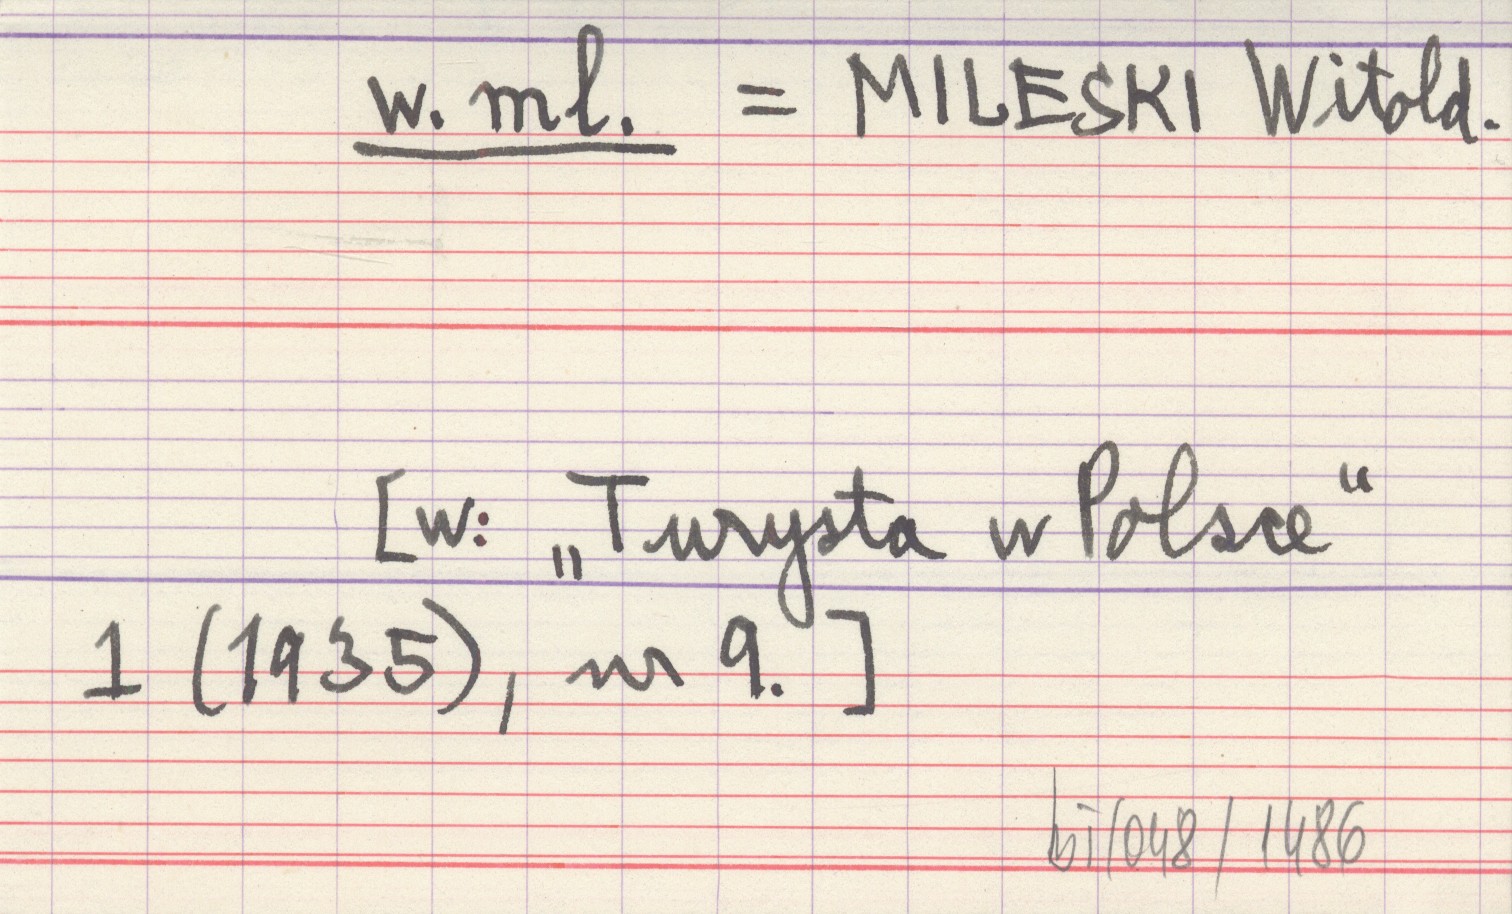 w. ml. = MILESKI Witold.
[w: „Turysta w Polsce“
1 (1935), nr 9. ]
bi/048/1486